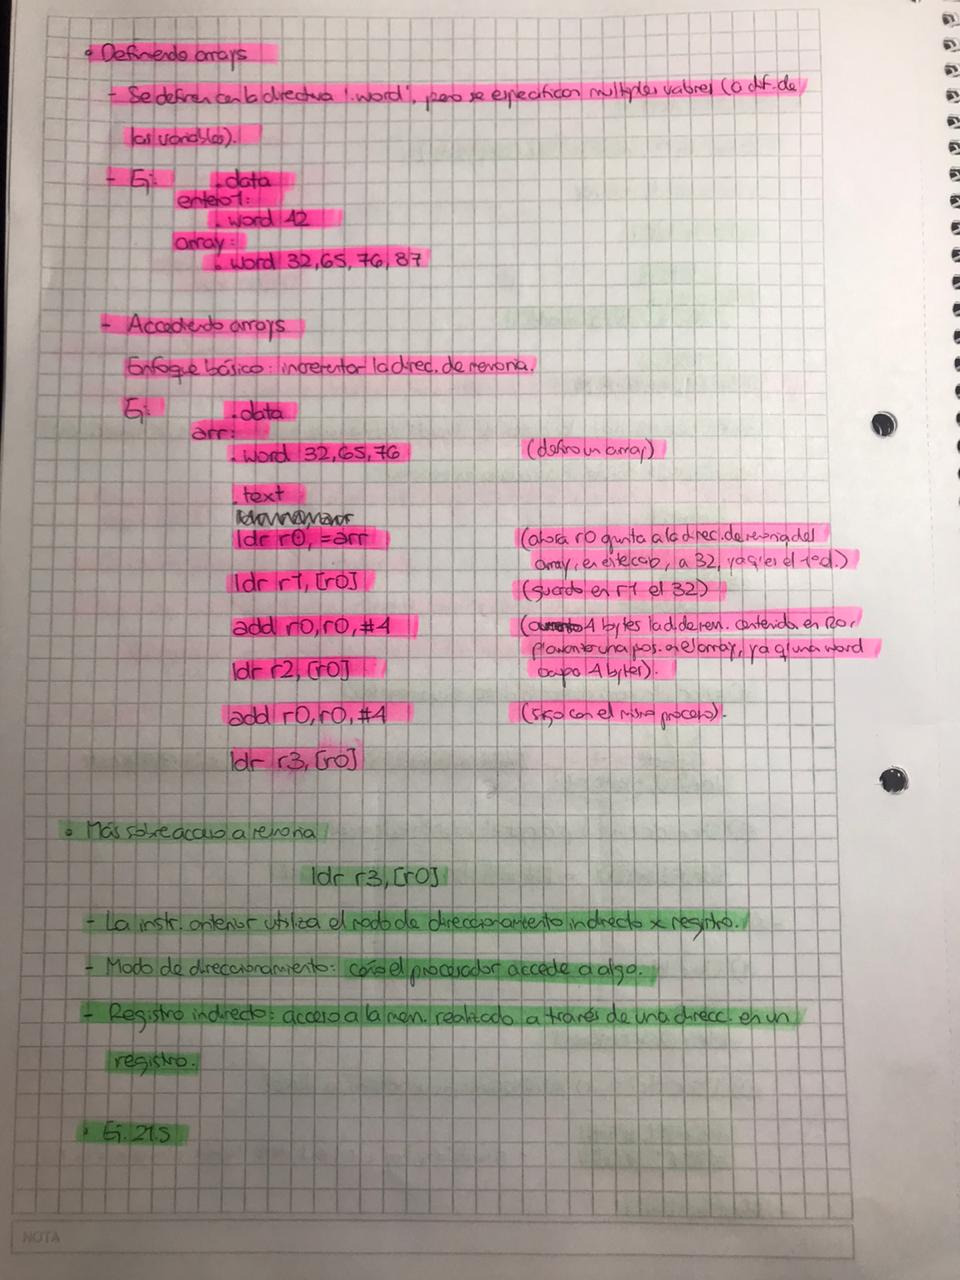 • Definiendo arrays
- Se definen con la directiva '.word', pero se especifican múltiples valores (a dif. de
las variables).
- Ej: .data
entero1:
.word 42
array:
.word 32,65,76,87
- Accediendo arrays
Enfoque básico: incrementar la direc. de memoria.
Ej: .data
arr:
.word 32,65,76 (defino un array)
.text
ldr r0, =arr (ahora r0 apunta a la direc. de memoria del
array, en este caso, a 32, ya q' es el 1er el.)
ldr r1, [r0] (guardo en r1 el 32)
add r0, r0, #4 (aumento 4 bytes la d. de mem. contenida en R0
una pos. en el array, ya q' una word
ldr r2, [r0] ocupa 4 bytes).
add r0, r0, #4 (sigo con el mismo proceso).
ldr r3, [r0]
• Más sobre acceso a memoria
ldr r3, [r0]
- La instr. anterior utiliza el modo de direccionamiento indirecto x registro.
- Modo de direccionamiento: cómo el procesador accede a algo.
- Registro indirecto: acceso a la mem. realizado a través de una direcc. en un
registro.
• Ej. 21.S
NOTA